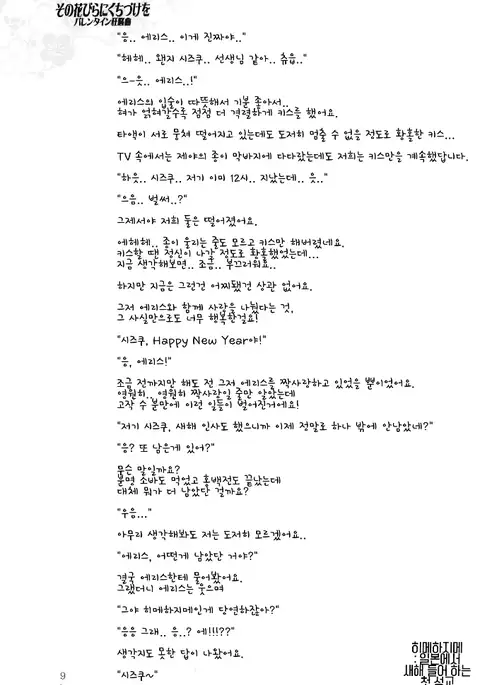 その花びらにくちづけを
バレンタイン狂騒曲
"응.. 에리스.. 이게 진짜야.."
"헤헤.. 왠지 시즈쿠.. 선생님 같아.. 츄읍.."
"으-읏.. 에리스..!"
에리스의 입술이 따뜻해서 기분 좋아서..
혀가 얽혀갈수록 점점 더 격렬하게 키스를 했어요.
타액이 서로 뭉쳐 떨어지고 있는데도 도저히 멈출 수 없을 정도로 황홀한 키스...
TV 속에서는 제야의 종이 막바지에 다다랐는데도 저희는 키스만을 계속했답니다.
"하읏.. 시즈쿠.. 저기 이미 12시.. 지났는데.. 읏.."
"으음.. 벌써..?"
그제서야 저희 둘은 떨어졌어요.
에헤헤.. 종이 울리는 줄도 모르고 키스만 해버렸네요.
키스할 땐 정신이 나갈 정도로 황홀했었는데...
지금 생각해보면.. 조금.. 부끄러워요..
하지만 지금은 그런건 어찌됐건 상관 없어요.
그저 에리스와 함께 사랑을 나눴다는 것,
그 사실만으로도 너무 행복한걸요!
"시즈쿠, Happy New Year야!"
"응, 에리스!"
조금 전까지만 해도 전 그저 에리스를 짝사랑하고 있었을 뿐이었어요.
영원히.. 영원히 짝사랑일 줄만 알았는데
고작 수 분만에 이런 일들이 벌어진거에요!
"저기 시즈쿠, 새해 인사도 했으니까 이제 정말로 하나 밖에 안남았네?"
"응? 또 남은게 있어?"
무슨 말일까요?
분명 소바도 먹었고 홍백전도 끝났는데
대체 뭐가 더 남았단 걸까요?
"우음..."
아무리 생각해봐도 저는 도저히 모르겠어요..
"에리스, 어떤게 남았단 거야?"
결국 에리스한테 물어봤어요.
그랬더니 에리스는 웃으며
"그야 히메하지메인게 당연하잖아?"
"응응 그래.. 응..? 에!!!??"
생각지도 못한 답이 나왔어요.
"시즈쿠~"
히메하지메
: 일본에서
새해 들어 하는
첫 섹교
9